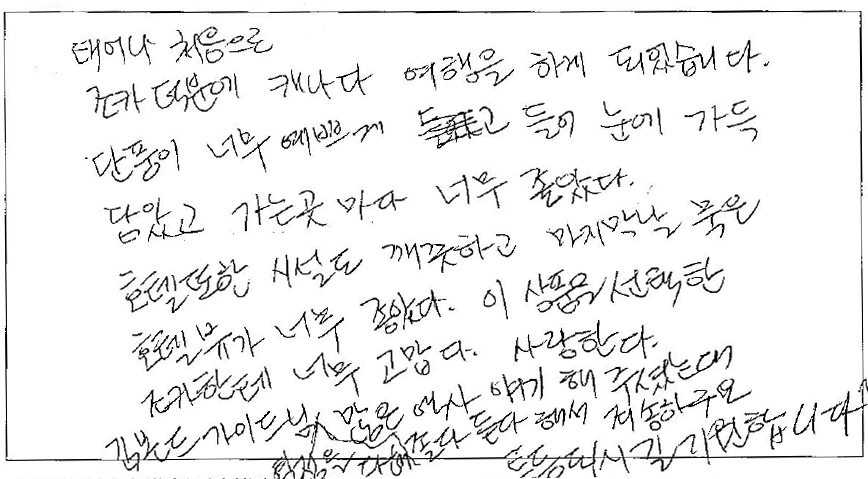 태어나 처음으로
조카 덕분에 캐나다 여행을 하게 되었습니다.
단풍이 너무 예쁘게 고 들어 눈에 가득
담았고 가는곳 마다 너무 좋았다.
호텔또한 시설도 깨끗하고 마지막날 묵은
호텔뷰가 너무 좋았다. 이 상품을 선택한
조카한테 너무 고맙다. 사랑한다.
가이드님 많은 역사 얘기 해 주셨는데
졸다 듣다 해서 죄송하구요
되시길 기원합니다